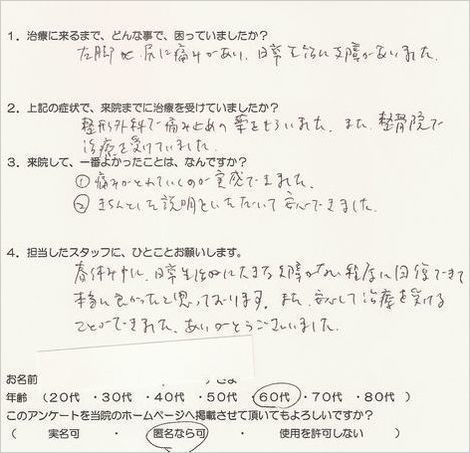 1．治療に来るまで、どんな事で、困っていましたか？
左脚と尻に痛みがあり、日常生活に支障がありました。
2．上記の症状で、来院までに治療を受けていましたか？
整形外科で痛み止めの薬をもらいました。また、整骨院で
治療を受けていました。
3．来院して、一番よかったことは、なんですか？
① 痛みがとれていくのが実感できました。
② きちんとした説明をいただいて安心できました。
4．担当したスタッフに、ひとことお願いします。
春休み中に、日常生活的に大きな支障がない程度に回復できて
本当に良かったと思っております。また、安心して治療を受ける
ことができました。ありがとうございました。
お名前
年齢 （20代 ・30代 ・40代 ・50代 ・60代 ・70代 ・80代 ）
このアンケートを当院のホームページへ掲載させて頂いてもよろしいですか？
（ 実名可 ・ 匿名なら可 ・ 使用を許可しない ）